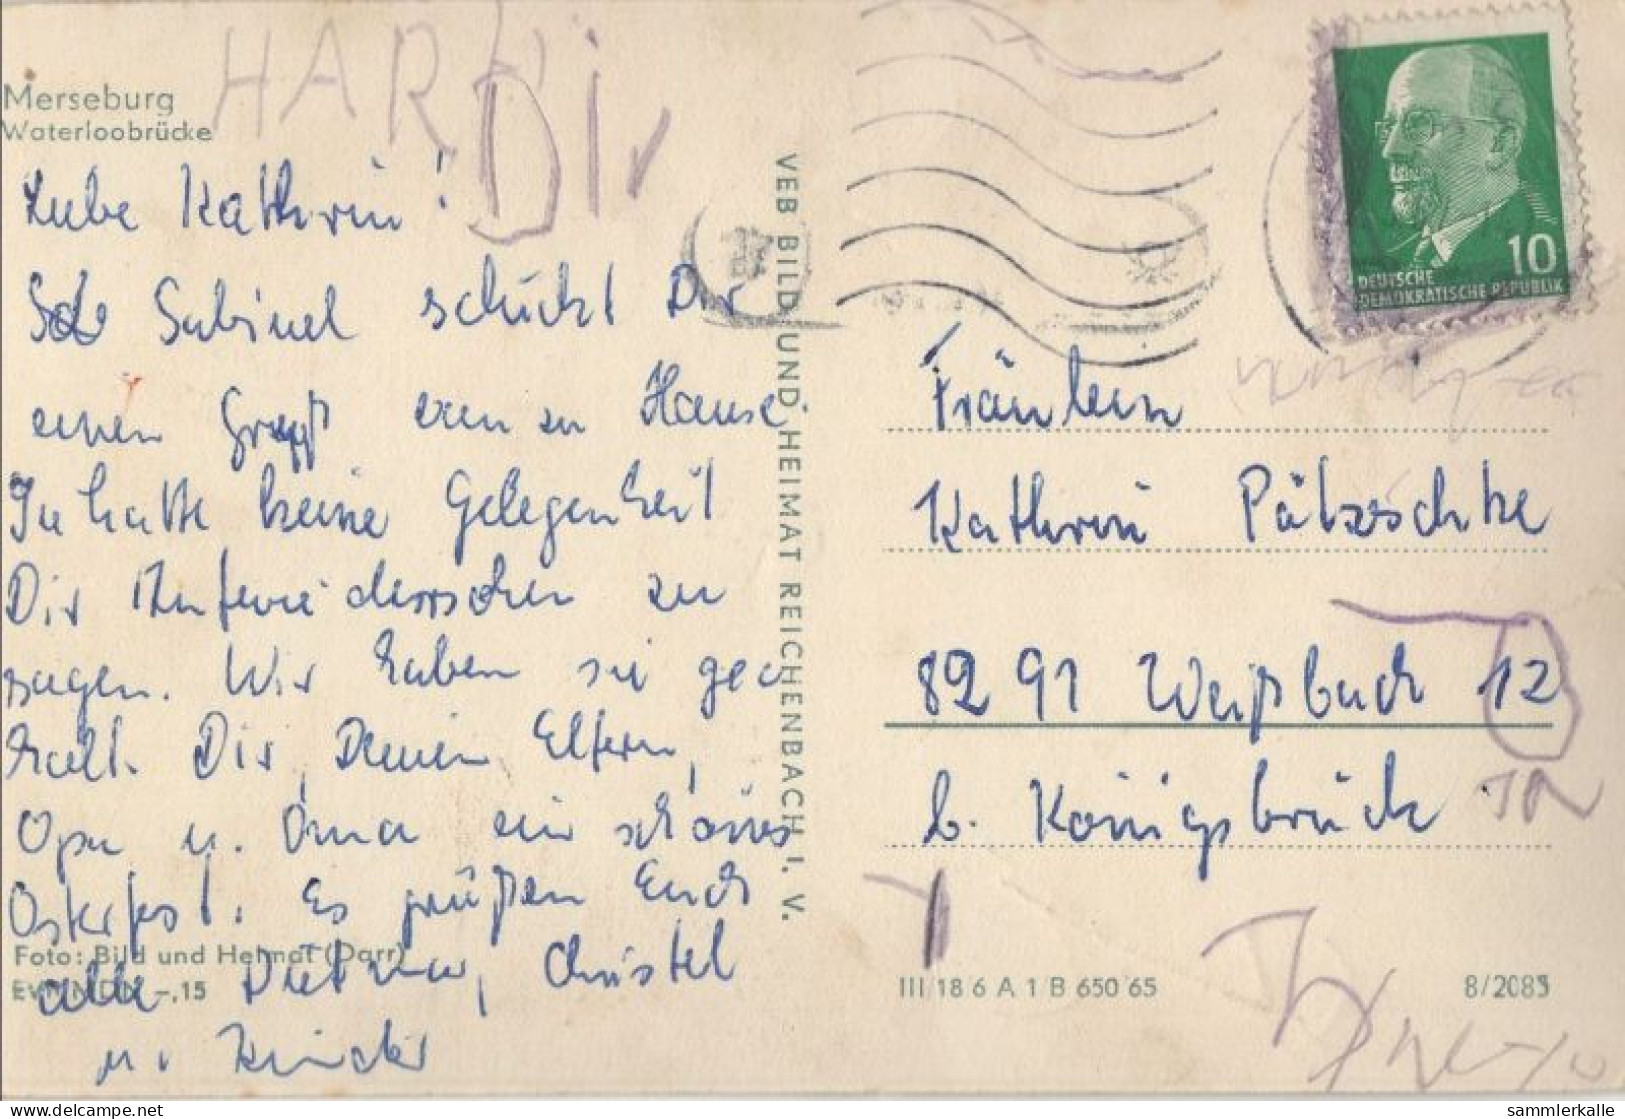 Merseburg
Waterloobrücke
HARDI
Liebe Kathrin!
Sabinel schückt Dir
einen Gruß von zu Hause.
Sie hatte keine Gelegenheit
Dir Aufwiedersehen zu
sagen. Wir haben sie ge
holt. Dir, Deinen Eltern,
Opa u. Oma ein schönes
Osterfest. Es grüßen Euch
alle Dietmar, Christel
u. Kinder
Foto: Bild und Heimat (Darr)
EVP MDN -,15
VEB BILD UND HEIMAT REICHENBACH I. V.
10
DEUTSCHE
DEMOKRATISCHE REPUBLIK
Fräulein
Kathrin Pätzschke
8291 Weißbach 12
b. Königsbrück
III/18 6 A 1/B 650/65
8/2083
sammlerkalle